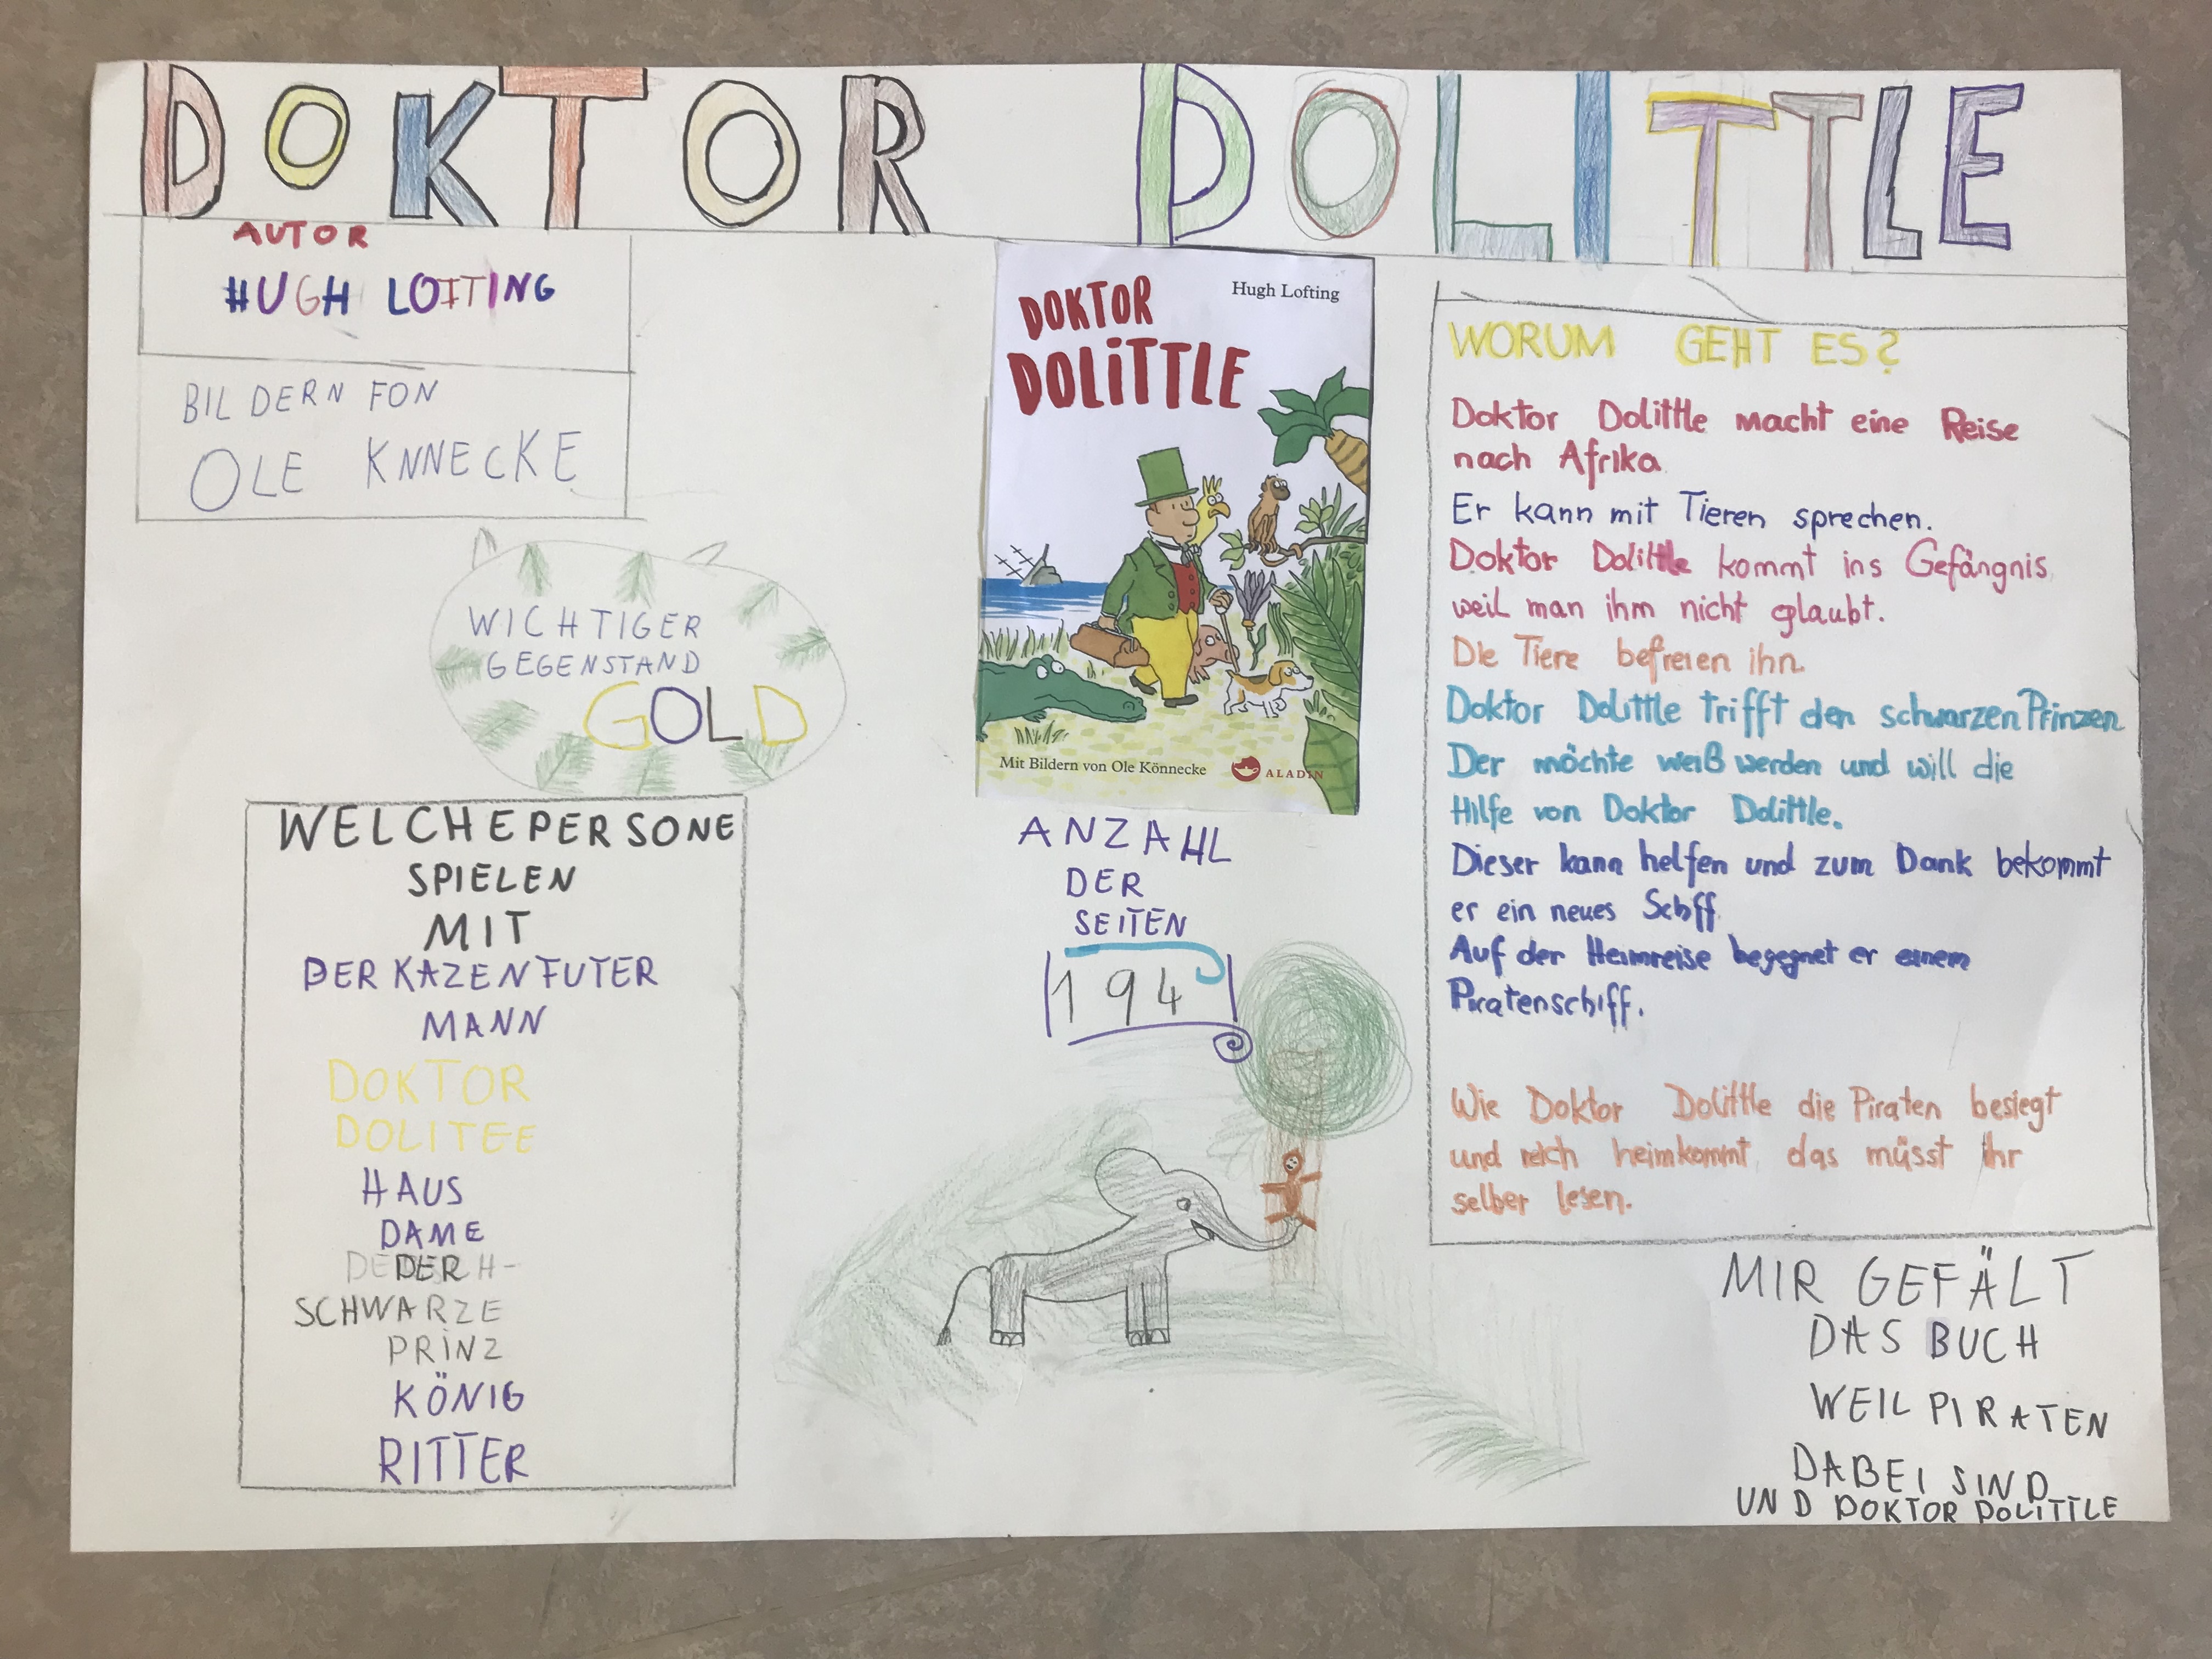 DOKTOR DOLITTLE
AUTOR
HUGH LOFTING
BILDERN FON
OLE KNNECKE
WICHTIGER
GEGENSTAND
GOLD
WELCHE PERSONE
SPIELEN
MIT
DER KAZENFUTER
MANN
DOKTOR
DOLITEE
HAUS
DAME
DER
SCHWARZE
PRINZ
KÖNIG
RITTER
Hugh Lofting
DOKTOR
DOLiTTLE
Mit Bildern von Ole Könnecke
ALADIN
ANZAHL
DER
SEITEN
194
WORUM GEHT ES?
Doktor Dolittle macht eine Reise
nach Afrika
Er kann mit Tieren sprechen.
Doktor Dolittle kommt ins Gefängnis
weil man ihm nicht glaubt.
Die Tiere befreien ihn.
Doktor Dolittle trifft den schwarzen Prinzen
Der möchte weiß werden und will die
Hilfe von Doktor Dolittle.
Dieser kann helfen und zum Dank bekommt
er ein neues Schff
Auf der Heimreise begegnet er einem
Piratenschiff.
Wie Doktor Dolittle die Piraten besiegt
und reich heimkommt, das müsst ihr
selber lesen.
MIR GEFÄLT
DAS BUCH
WEIL PIRATEN
DABEI SIND
UND DOKTOR DOLITTLE